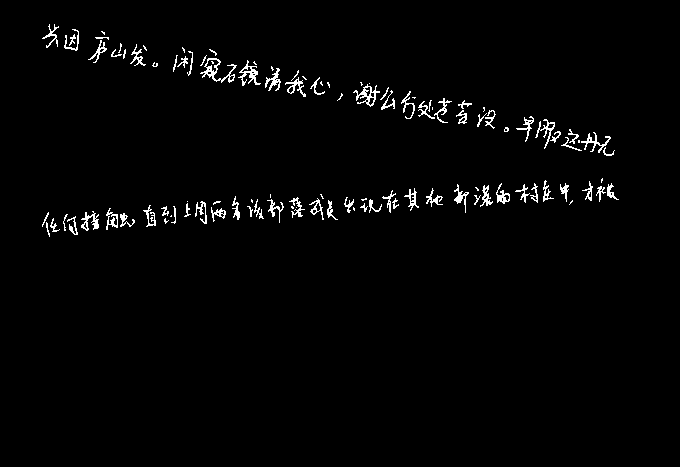 兴因庐山发。闲窥石镜清我心，谢公行处苍苔没。早服还丹无
任何接触，直到上周两名该部落成员出现在其他部落的村庄中，才被